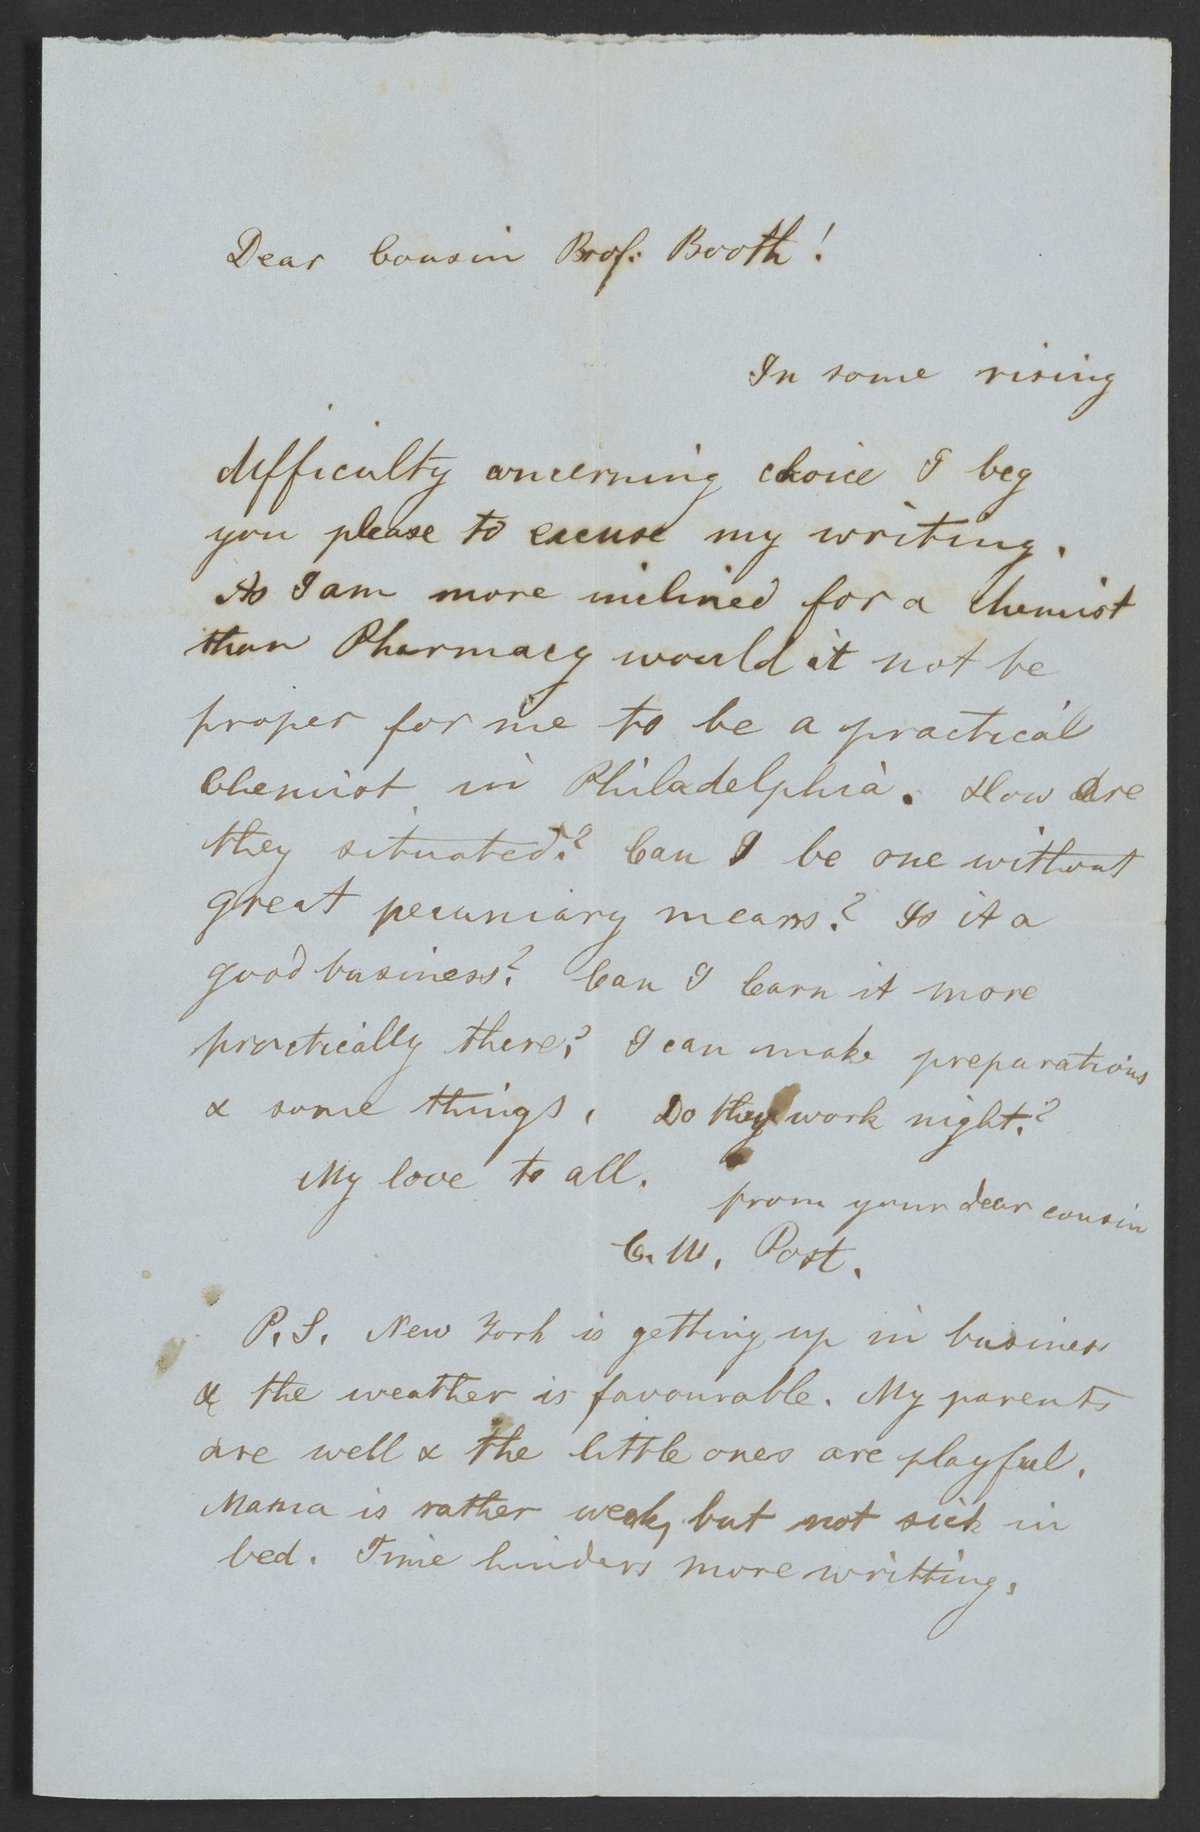 Dear Cousin Prof. Booth!
In some rising
difficulty concerning choice I beg
you please to excuse my writing.
As I am more inclined for a chemist
than Pharmacy would it not be
proper for me to be a practical
Chemist in Philadelphia. How are
they situated? Can I be one without
great pecuniary means? Is it a
good business? Can I learn it more
practically there? I can make preparations
& some things. Do they work night?
My love to all.
from your dear cousin
C. W. Post.
P.S. New York is getting up in business
& the weather is favourable. My parents
are well & the little ones are playful.
Mama is rather weak, but not sick in
bed. Time hinders more writting.